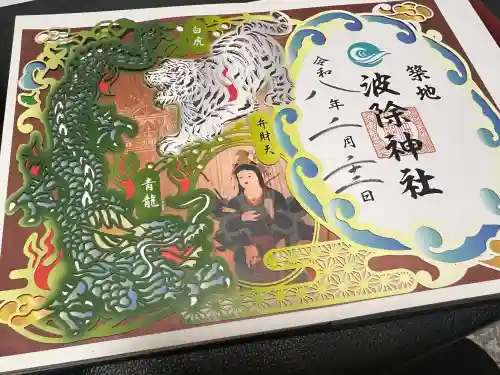 白虎
弁財天
青龍
築地
波除神社
令和八年二月二十二日